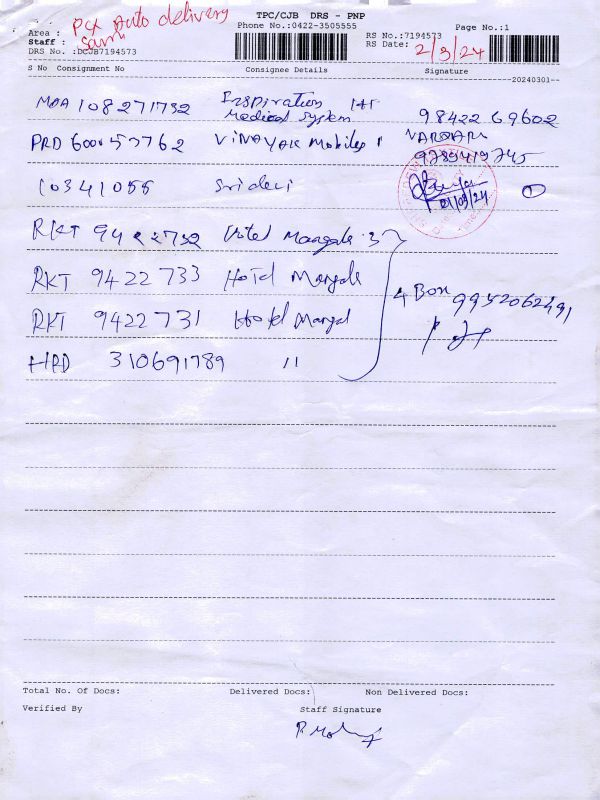 TPC/CJB DRS - PNP
Phone No.:0422-3505555
Page No.:1
Area : Auto delivery
Staff : Sami
DRS No. :DCJB7194573
RS No.:7194573
RS Date: 2/3/24
S No Consignment No Consignee Details Signature
20240301--
MDA 108271732 Inspiration
Medical System 98422 69602
PRD 600153762 VINAYAK Mobiles
9789419745
10341055 Sridevi
01/03/24
RKT 9422732 Hotel Mangala 3
RKT 9422 733 Hotel Mangala
4 Box 9952062491
RKT 9422 731 Hotel Mangal
HRD 310691789 11
Total No. Of Docs: Delivered Docs: Non Delivered Docs:
Verified By Staff Signature